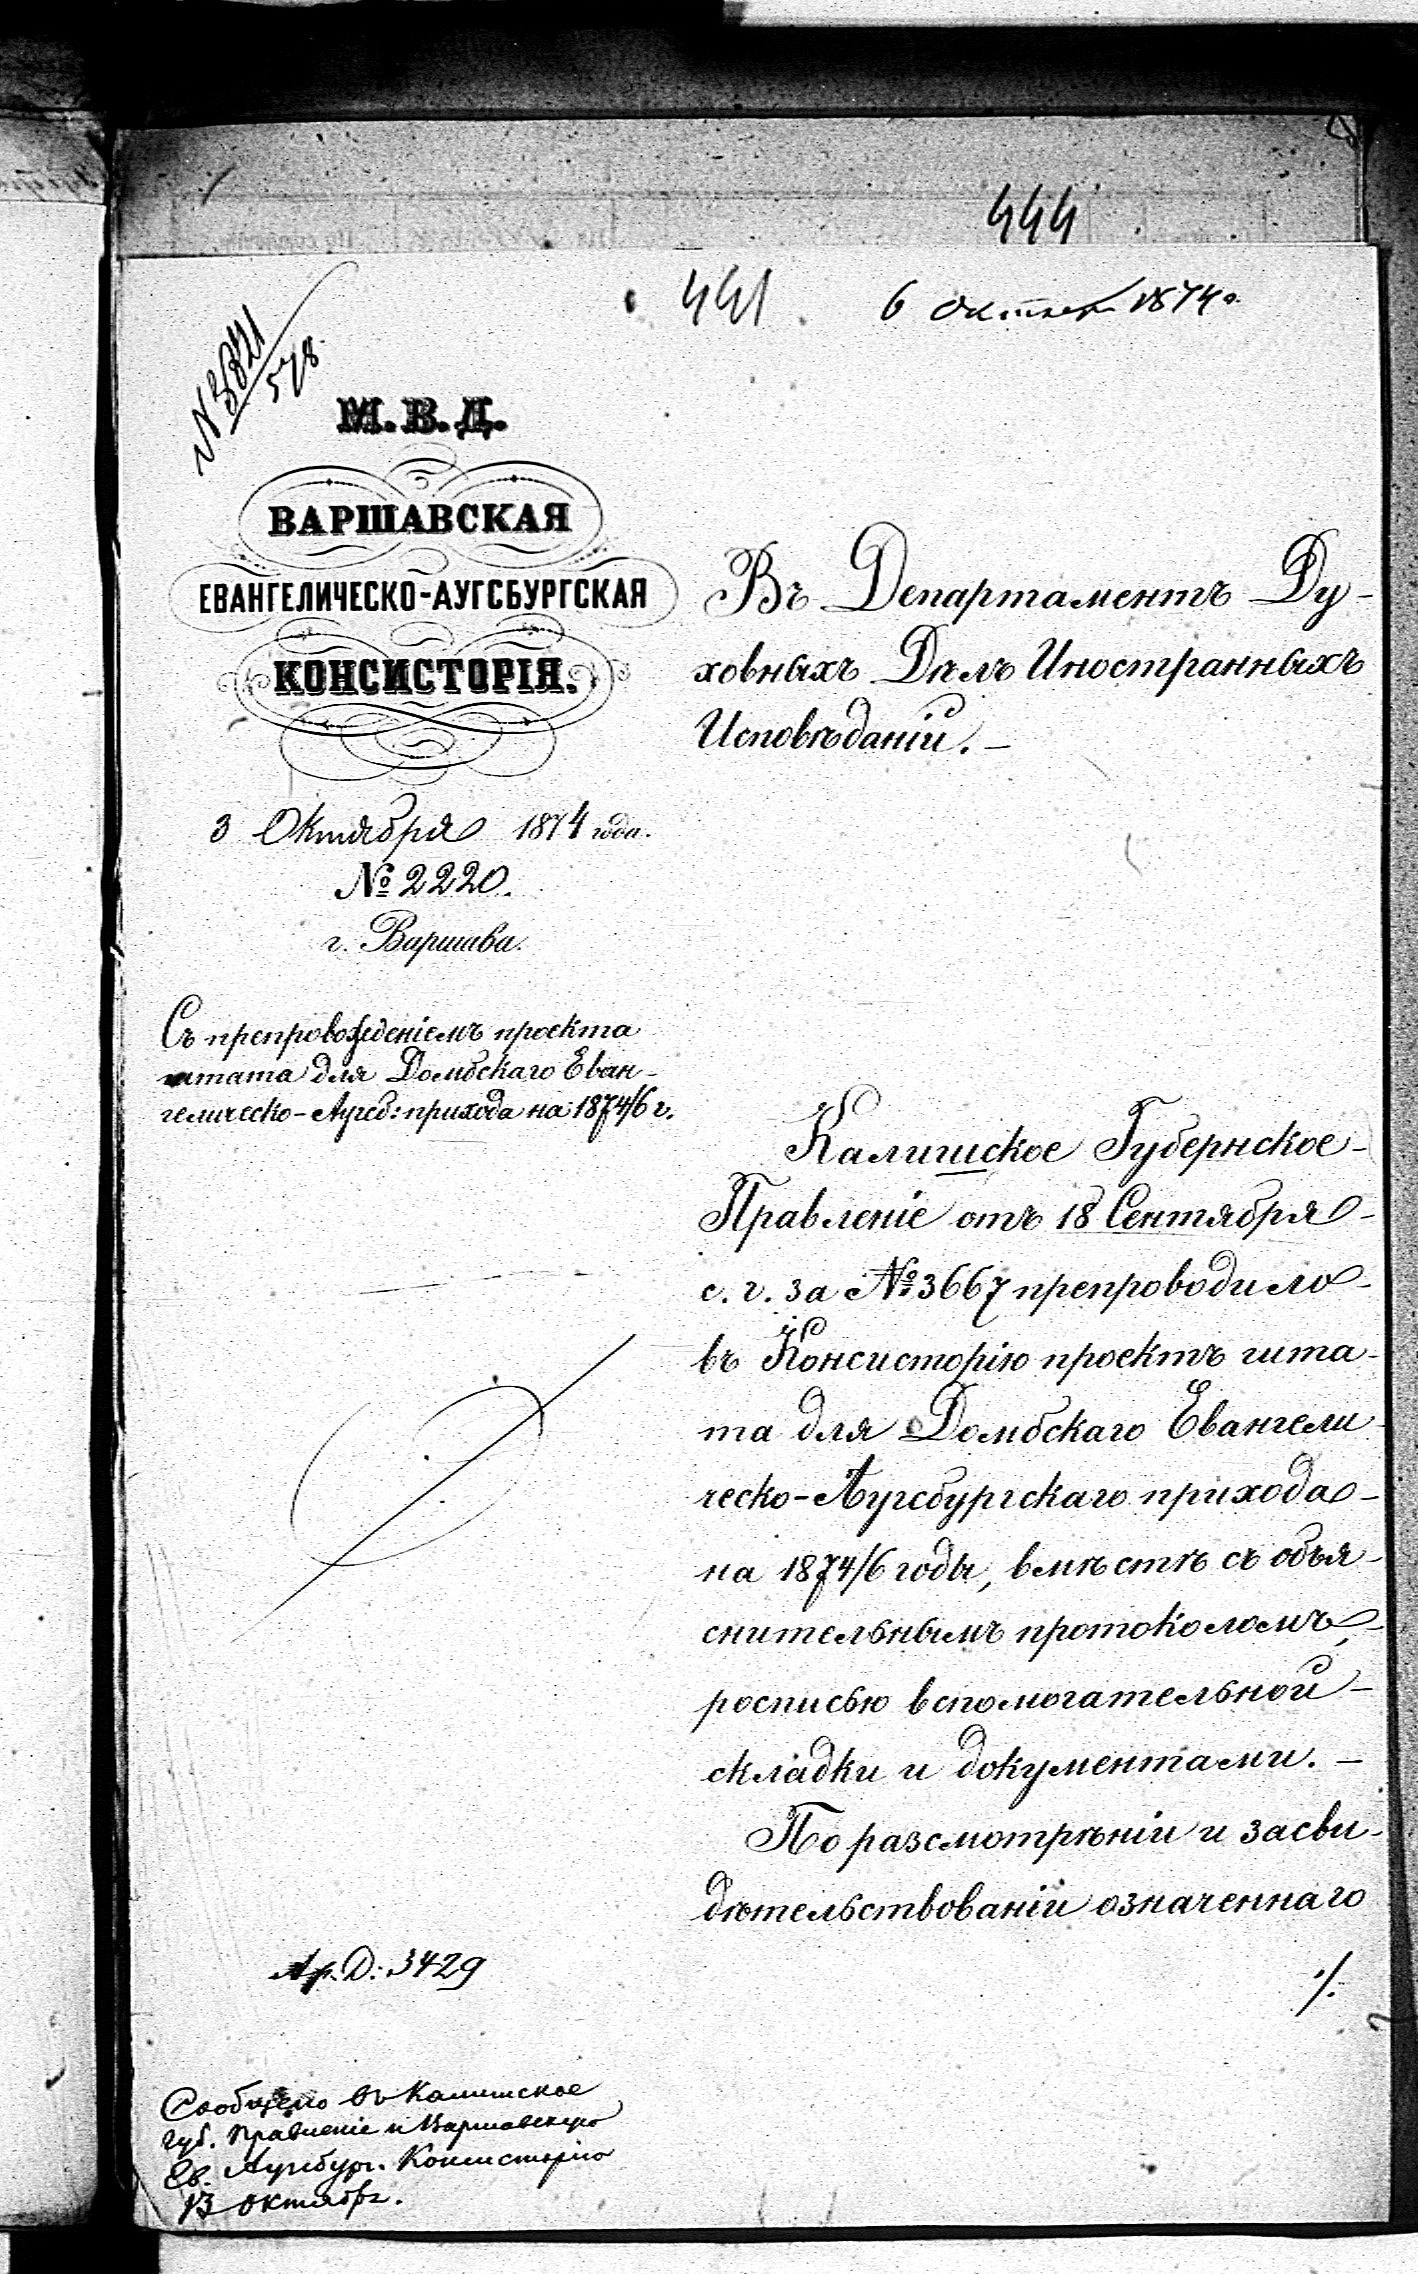 444
441
6 Октября 1874 г.
№ 3821/578
М. В. Д.
ВАРШАВСКАЯ
ЕВАНГЕЛИЧЕСКО-АУГСБУРГСКАЯ
КОНСИСТОРІЯ.
3 Октября 1874 года.
№ 2220.
г. Варшава.
Съ препровожденіемъ проекта
штата для Домбскаго Еван-
гелическо-Аугсб: прихода на 1874/6 г.
Въ Департаментъ Ду-
ховныхъ Дѣлъ Иностранныхъ
Исповѣданій. —
Калишское Губернское
Правленіе отъ 18 Сентября
с. г. за № 3667 препроводило
въ Консисторію проектъ шта-
та для Домбскаго Евангели-
ческо-Аугсбургскаго прихода
на 1874/6 годы, вмѣстѣ съ объя-
снительнымъ протоколомъ,
росписью вспомогательной
складки и документами. —
По разсмотрѣніи и засви-
дѣтельствованіи означеннаго
./.
Ар. Д: 3429
Сообщено въ Калишское
Губ. Правленіе и Варшавскую
Ев. Аугсбург. Консисторію
13 Октября.